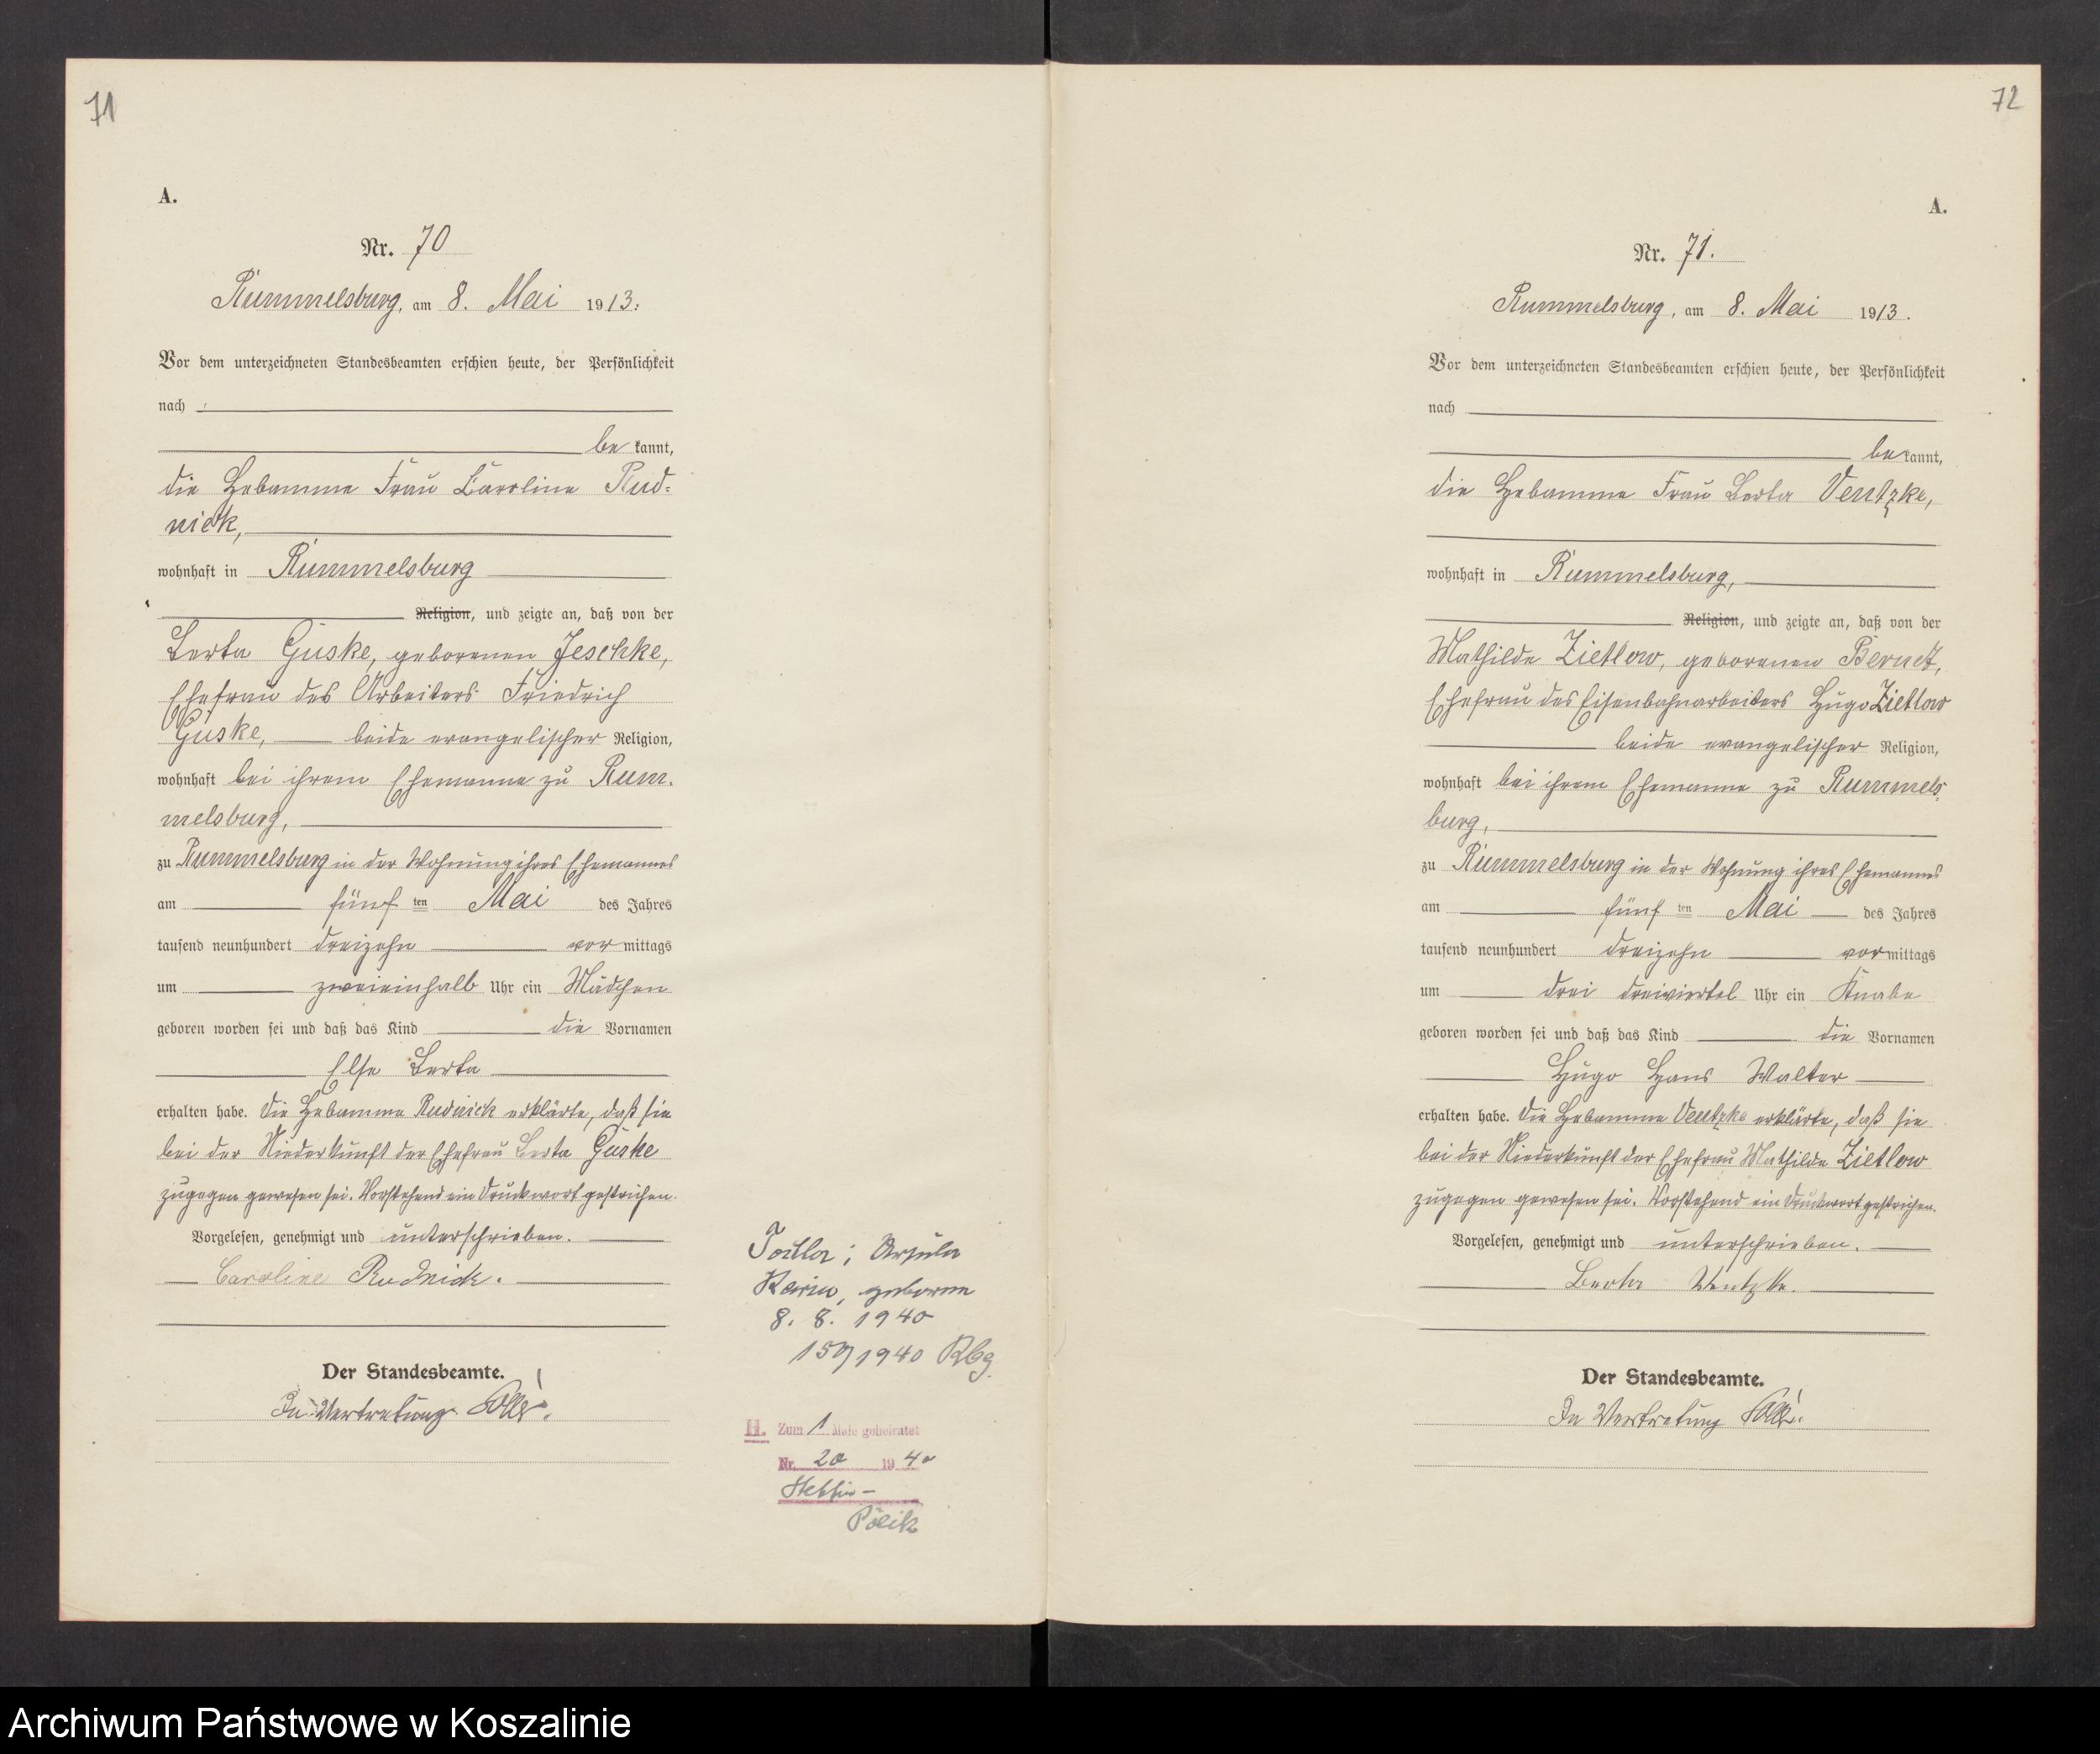 71
A.
Nr. 70
Rummelsburg, am 8. Mai 1913.
Vor dem unterzeichneten Standesbeamten erschien heute, der Persönlichkeit
nach
be kannt,
die Hebamme Frau Caroline Rud-
nick,
wohnhaft in Rummelsburg
Religion, und zeigte an, daß von der
Berta Guske, geborenen Jeschke,
Ehefrau des Arbeiters Friedrich
Guske, beide evangelischer Religion,
wohnhaft bei ihrem Ehemanne zu Rum-
melsburg,
zu Rummelsburg in der Wohnung ihres Ehemannes
am fünf ten Mai des Jahres
tausend neunhundert dreizehn vor mittags
um zweieinhalb Uhr ein Mädchen
geboren worden sei und daß das Kind die Vornamen
Else Berta
erhalten habe. Die Hebamme Rudnick erklärte, daß sie
bei der Niederkunft der Ehefrau Berta Guske
zugegen gewesen sei. Vorstehend ein Druckwort gestrichen.
Vorgelesen, genehmigt und unterschrieben.
Caroline Rudnick.
Der Standesbeamte.
In Vertretung
Tochter: Ursula
Karin, geboren
8. 8. 1940
159/1940 Rbg.
H. Zum 1 Male geheiratet
Nr. 20 1940
Stettin-
Pölitz
72
A.
Nr. 71.
Rummelsburg, am 8. Mai 1913.
Vor dem unterzeichneten Standesbeamten erschien heute, der Persönlichkeit
nach
be kannt,
die Hebamme Frau Berta Ventzke,
wohnhaft in Rummelsburg,
Religion, und zeigte an, daß von der
Mathilde Zietlow, geborenen
Ehefrau des Eisenbahnarbeiters Hugo Zietlow
beide evangelischer Religion,
wohnhaft bei ihrem Ehemanne zu Rummels-
burg,
zu Rummelsburg in der Wohnung ihres Ehemannes
am fünf ten Mai des Jahres
tausend neunhundert dreizehn vor mittags
um drei dreiviertel Uhr ein Knabe
geboren worden sei und daß das Kind die Vornamen
Hugo Hans Walter
erhalten habe. Die Hebamme Ventzke erklärte, daß sie
bei der Niederkunft der Ehefrau Mathilde Zietlow
zugegen gewesen sei. Vorstehend ein Druckwort gestrichen.
Vorgelesen, genehmigt und unterschrieben.
Berta Ventzke.
Der Standesbeamte.
In Vertretung
Archiwum Państwowe w Koszalinie